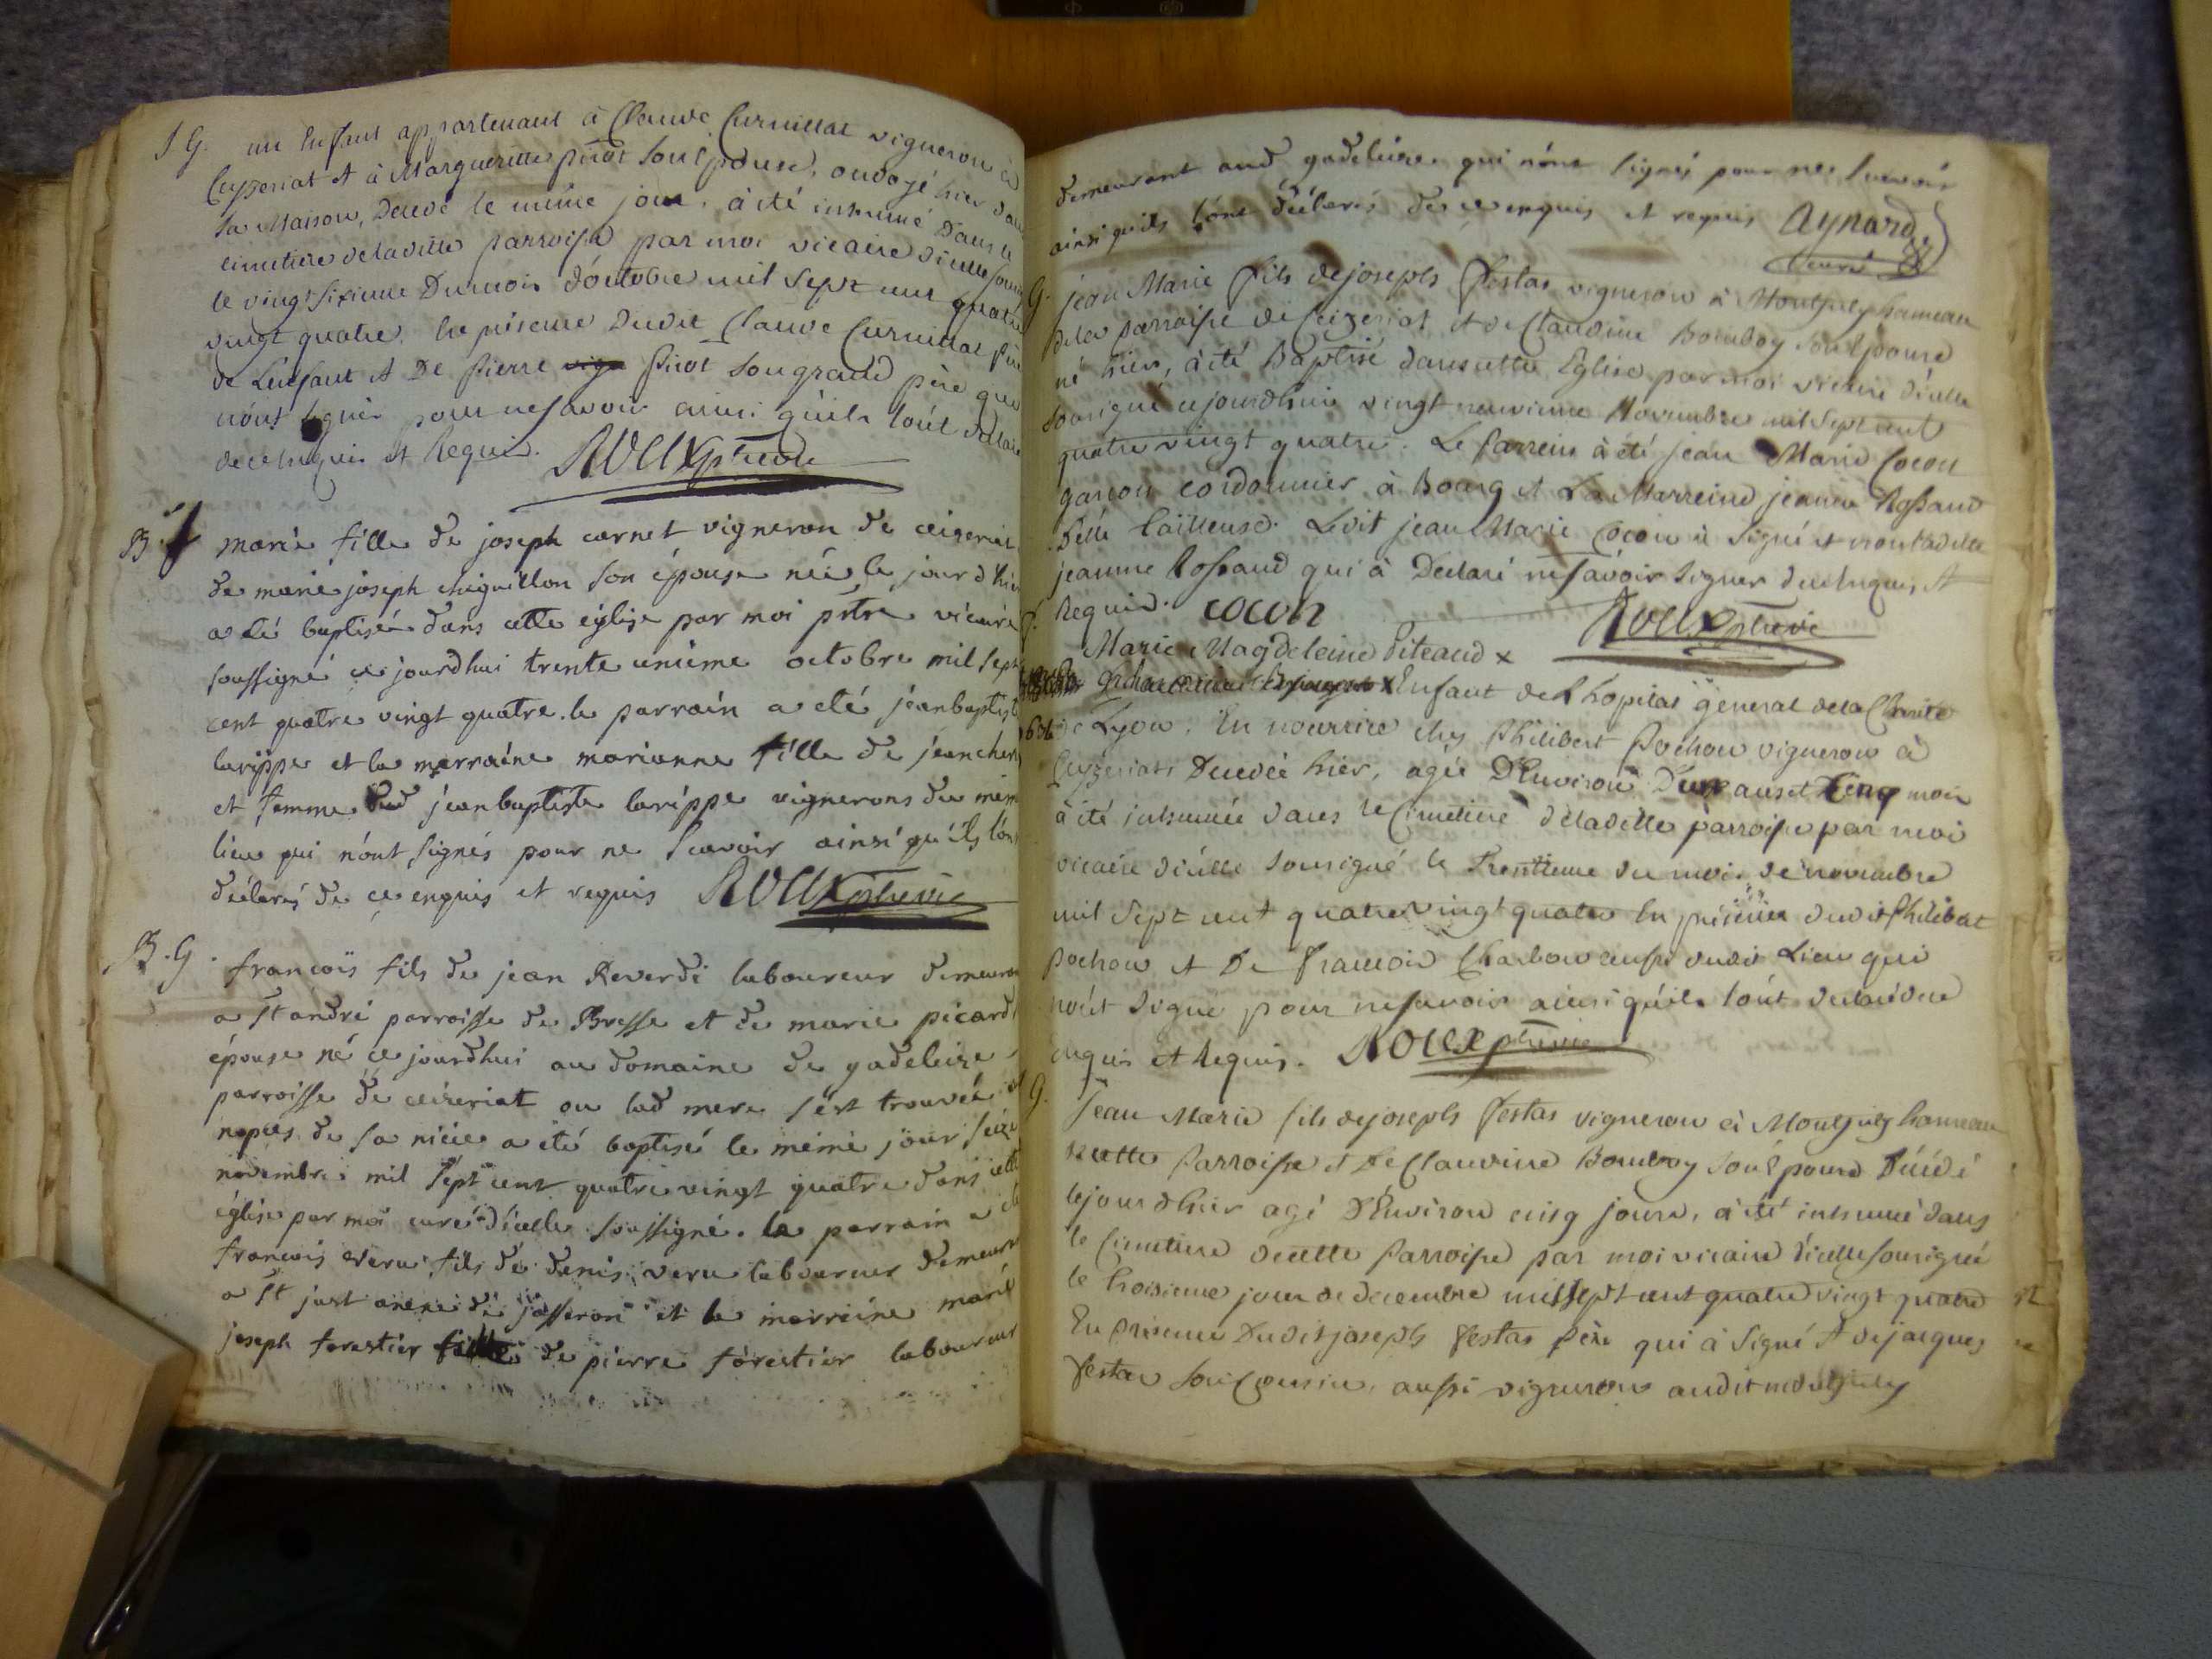 S G. un Enfant appartenant à Claude Curnillat vigneron à
Ceyzeriat et à Margueritte pirot son Epouse, ondoyé hier dans
sa Maison, Decedé le même jour, à été inhumé Dans le
cimetiere de ladille parroisse par moi vicaire d'icelle
le vingt sixieme Du mois d'octobre mil sept cent quatre
vingt quatre. En présence Dudit Claude Curnillat père
de L'enfant et De Pierre pirot son grand père qui
n'ont signé pour ne savoir ainsi qu'ils l'ont déclaré
de ce Enquis et Requis. ROUX ptre vic
B f marie fille de joseph carnet vigneron de ceizeriat
de marie joseph chiguillon son épouse née le jour d'hier
a eté baptisée dans cette église par moi ptre vicaire
soussigné ce jourdhui trente unième octobre mil sept
cent quatre vingt quatre. le parrain a eté jeanbaptiste
larippe et la marraine marianne fille de jean
et femme dud jeanbaptiste larippe vignerons du même
lieu qui n'ont signés pour ne scavoir ainsi qu'ils l'ont
déclarés de ce enquis et requis ROUX ptre vic
B. G. françois fils de jean Reverdi laboureur demeurant
a st andré parroisse de Bresse et de marie picard
épouse né ce jourdhui au domaine de gadeleize
parroisse de ceizeriat ou lad mere s'est trouvée
nopces de sa niéce a été baptisé le méme jour seize
novembre mil sept cent quatre vingt quatre dans cette
église par moi curé d'icelle soussigné. le parrain a été
françois veru fils de denis veru laboureur demeurant
a st just anexe de jasseron et la marraine marie
joseph forestier fille de pierre forestier laboureur
demeurant aud gadeleize qui n'ont signés pour ne scavoir
ainsi qu'ils l'ont déclarés de ce enquis et requis Aynard
curé
G. jean Marie fils de joseph Festas vigneron à Montjuly hameau
de la parroisse de Ceizeriat et de Claudine Bomboy son Epouse
né hier, à été Baptisé dans cette Eglise par moi vicaire d'icelle
sousigné cejourdhui vingt neuvieme Novembre mil sept cent
quatre vingt quatre. Le Parrein à été jean Marie Cocon
garcon cordonnier à Bourg et La Marreine jeanne Rossand
Tailleuse. Ledit jean Marie Cocon à Signé et non ladille
jeanne Rossand qui à Declaré ne savoir signer de ce Enquis et
Requis. cocon ROUX ptre vic
Marie Magdeleine Piteaud x
x Enfant de L'hopital général de la Charité
de Lyon. En nourrice chez Philibert Pochon vigneron à
Ceyzeriat Decedée hier, agée D'Environ Deux ans et Cinq mois
à été inhumée dans le Cimetiere de ladille parroisse par moi
vicaire d'icelle sousigné le Trentieme du mois de novembre
mil sept cent quatre vingt quatre En présence dudit Philibert
Pochon et De Francois Charbon aussi dudit Lieu qui
n'ont signé pour ne savoir ainsi qu'ils l'ont declaré de ce
enquis et Requis. ROUX ptre vic
G. Jean Marie fils de joseph Festas vigneron à Montjuly hameau
de cette Parroisse et De Claudine Bomboy son Epouse Décédé
le jour d'hier agé D'Environ cinq jours, à été inhumé dans
le Cimetiere de cette Parroisse par moi vicaire d'icelle sousigné
le troisieme jour de decembre mil sept cent quatre vingt quatre
En Présence Dudit joseph Festas père qui à Signé et de jacques
Festas son Cousin, aussi vigneron audit montjuly